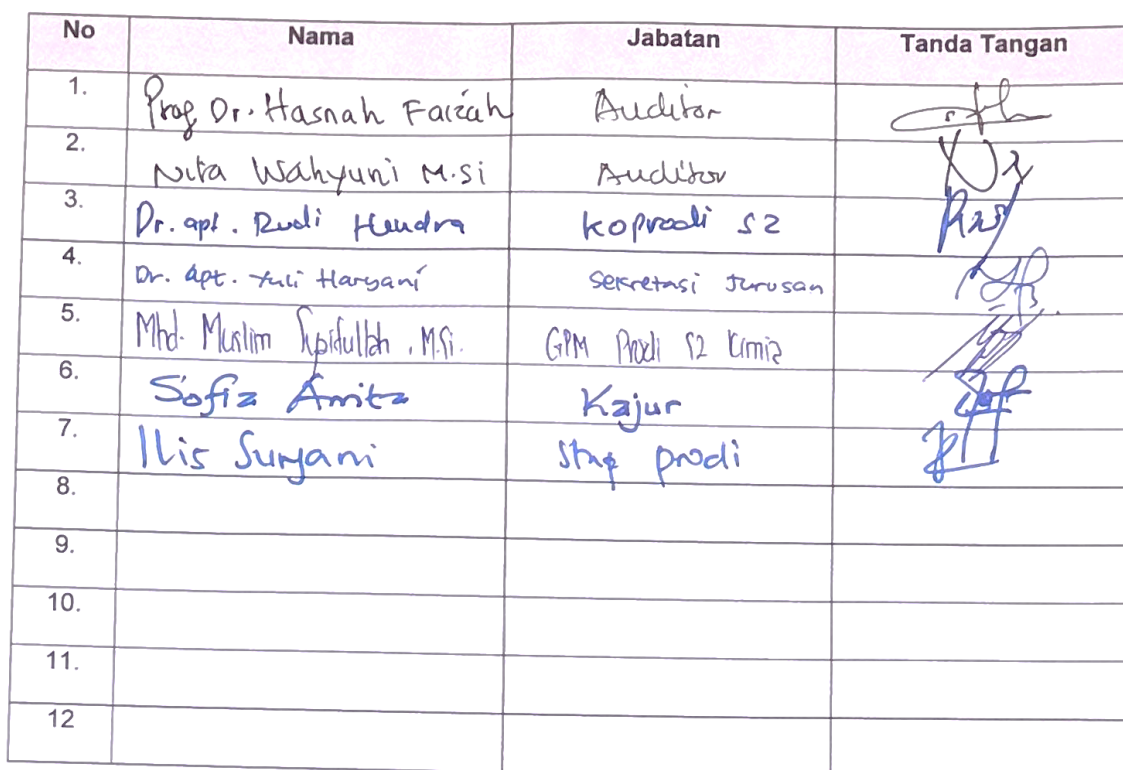 No Nama Jabatan Tanda Tangan
1. Prof Dr. Hasnah Faizah Auditor
2. Nita Wahyuni M.Si Auditor
3. Dr. apt. Rudi Hendra Koprodi S2
4. Dr. apt. Yuli Haryani Sekretasi Jurusan
5. Mhd. Muslim Syaifullah, M.Si. GPM Prodi S2 Kimia
6. Sofia Anita Kajur
7. Ilis Suryani Staf prodi
8.
9.
10.
11.
12